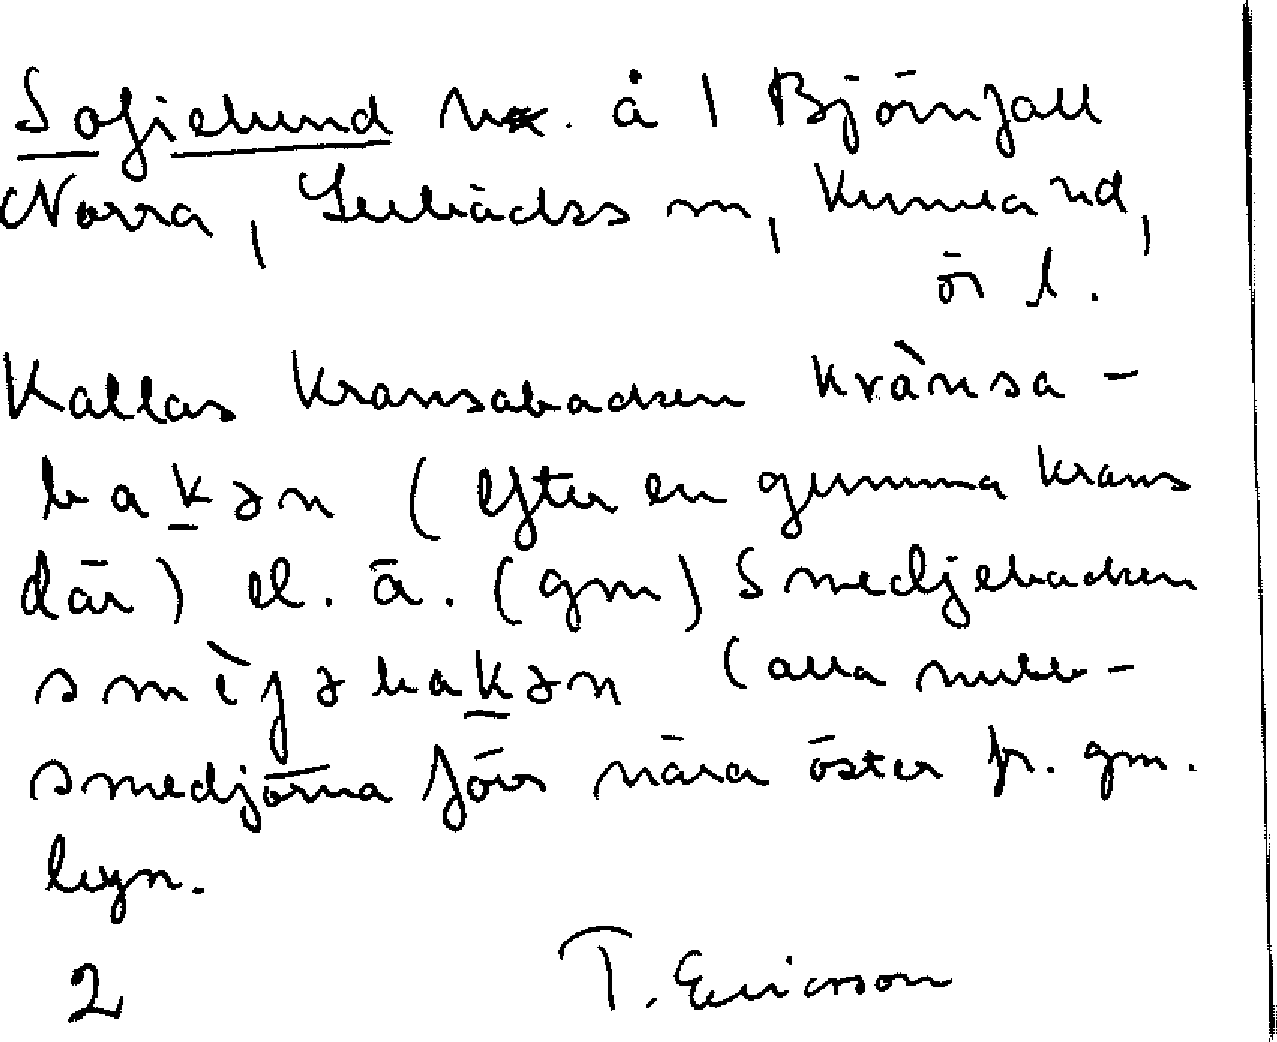 Sofielund    . å 1 Björnfall
Norra, Lerbäcks sn, Kumla hd,
ör l.
Kallas Kransabacken krànsa-
bakən (efter en gumma Krans
där) el. ä. (gm) Smedjebacken
smὶjəbakən (alla
smedjorna förr nära öster fr. gm.
byn.
2 T. Ericsson